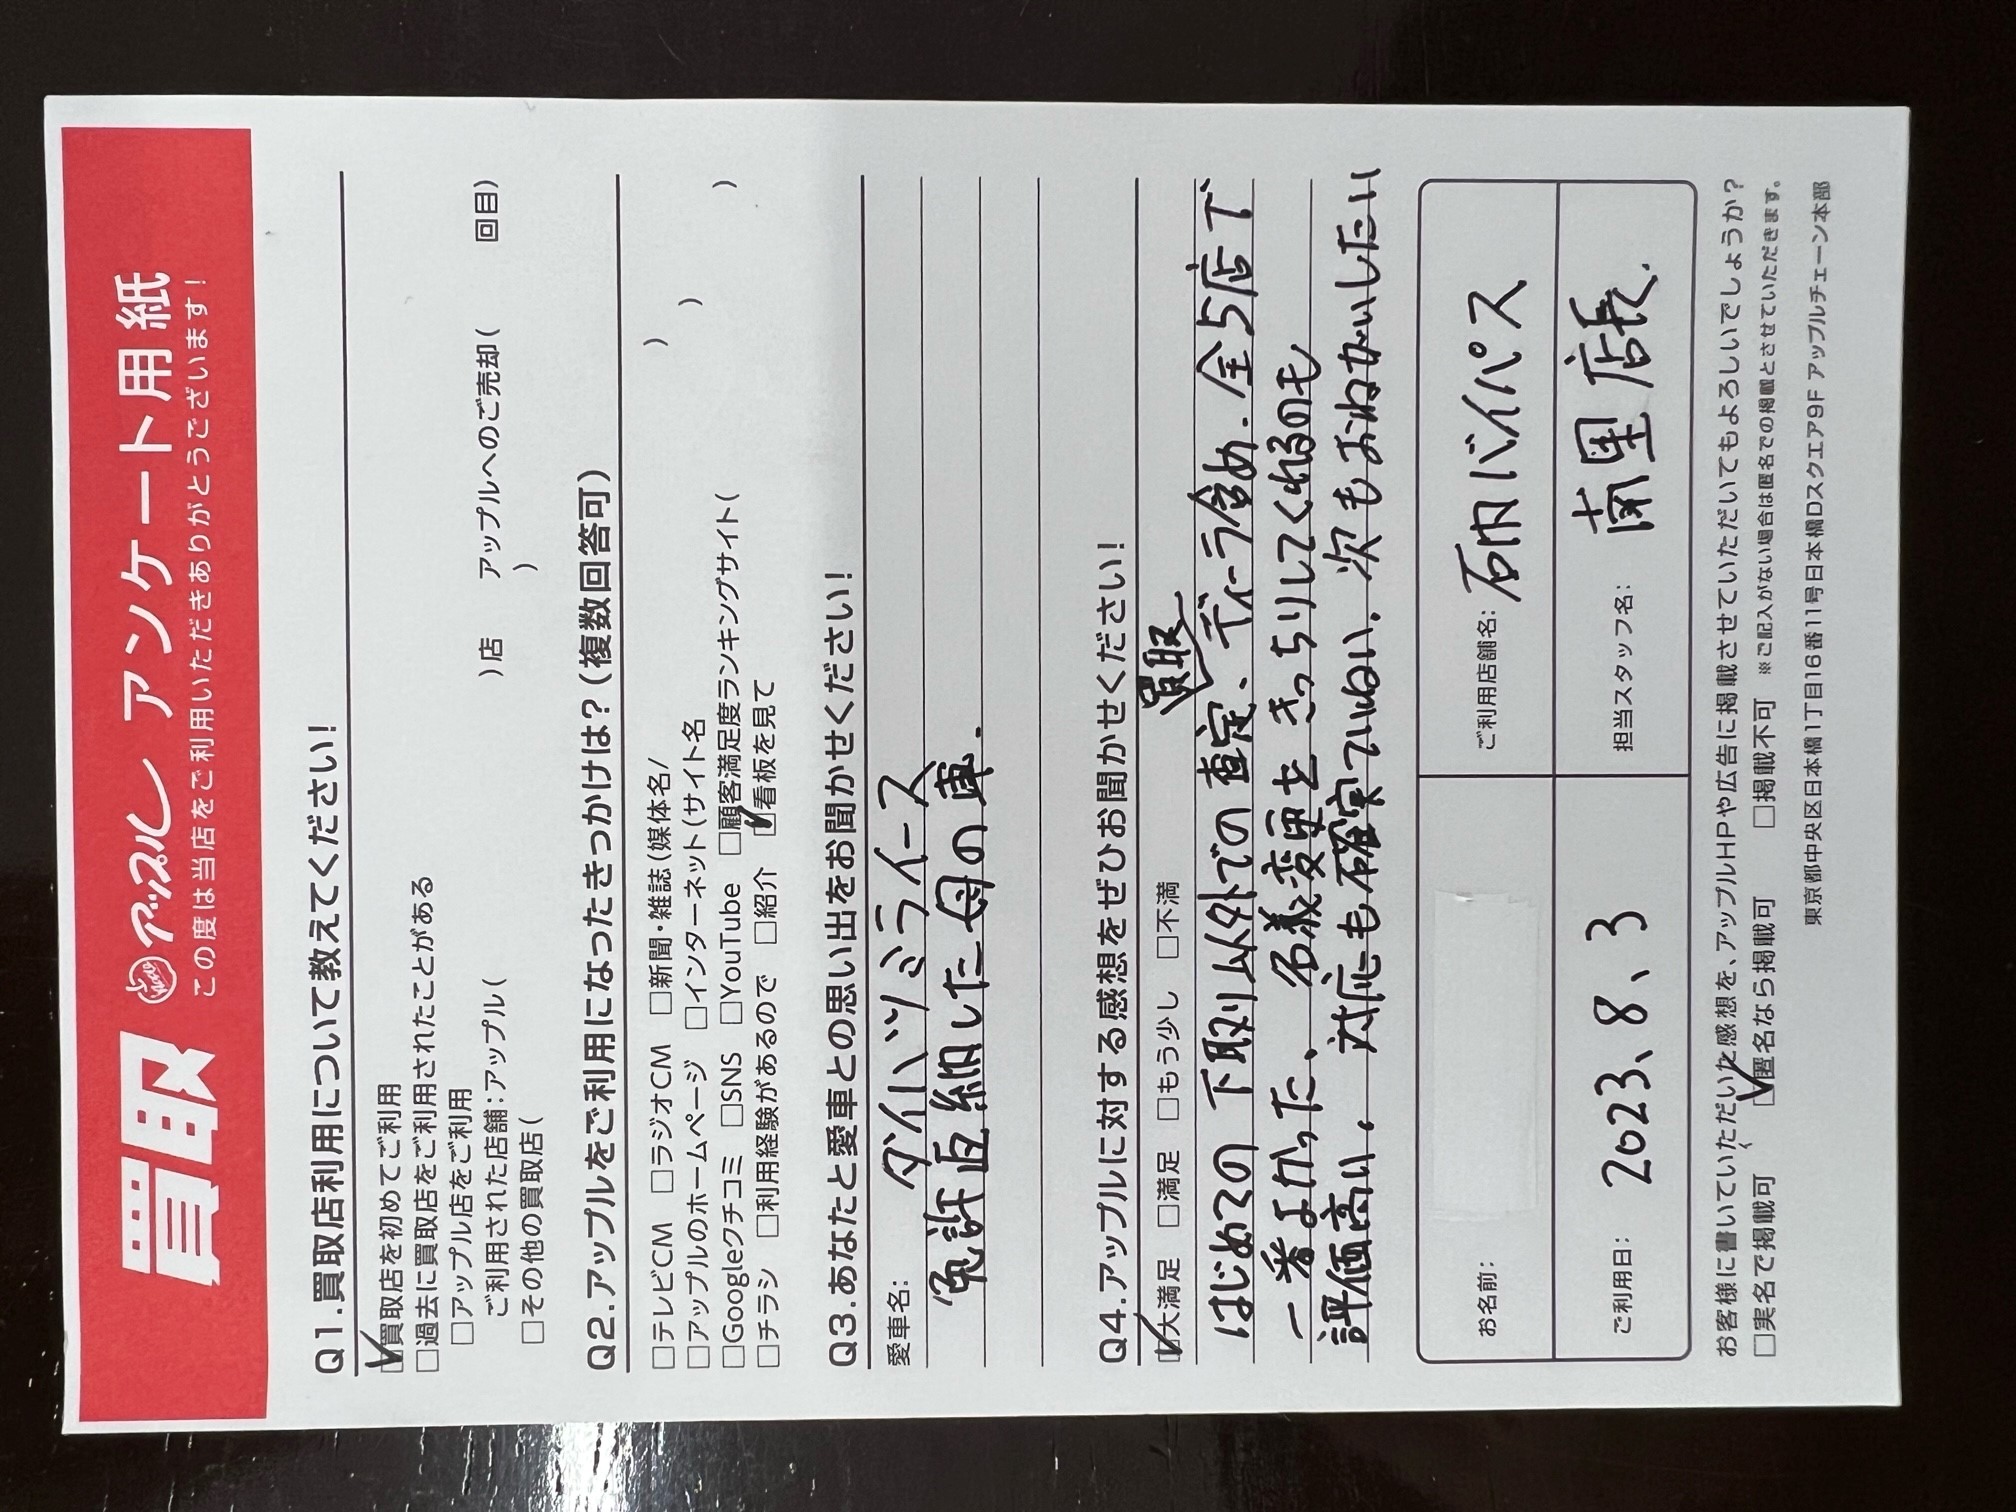 買取 アップル アンケート用紙
この度は当店をご利用いただきありがとうございます!
Q1.買取店利用について教えてください!
☑買取店を初めてご利用
□過去に買取店をご利用されたことがある
□アップル店をご利用
ご利用された店舗:アップル( )店 アップルへのご売却( 回目)
□その他の買取店( )
Q2.アップルをご利用になったきっかけは?(複数回答可)
□テレビCM □ラジオCM □新聞・雑誌(媒体名/ )
□アップルのホームページ □インターネット(サイト名 )
□Googleクチコミ □SNS □YouTube □顧客満足度ランキングサイト( )
□チラシ □利用経験があるので □紹介 ☑看板を見て
Q3.あなたと愛車との思い出をお聞かせください!
愛車名: ダイハツミライース
免許返納した母の車.
Q4.アップルに対する感想をぜひお聞かせください!
☑大満足 □満足 □もう少し □不満
買取
はじめての下取り以外での査定、ディーラ含め.全5店で
一番よかった、名義変更もきっちりしてくれるのも
評価高い. 対応も確実ていねい. 次もおねがいしたい
お名前:
ご利用店舗名: 石内バイパス
ご利用日: 2023、8、3
担当スタッフ名: 南里店長.
お客様に書いていただいた感想を、アップルHPや広告に掲載させていただいてもよろしいでしょうか?
□実名で掲載可 ☑匿名なら掲載可 □掲載不可 ※ご記入がない場合は匿名での掲載とさせていただきます。
東京都中央区日本橋1丁目16番11号日本橋Dスクエア9F アップルチェーン本部